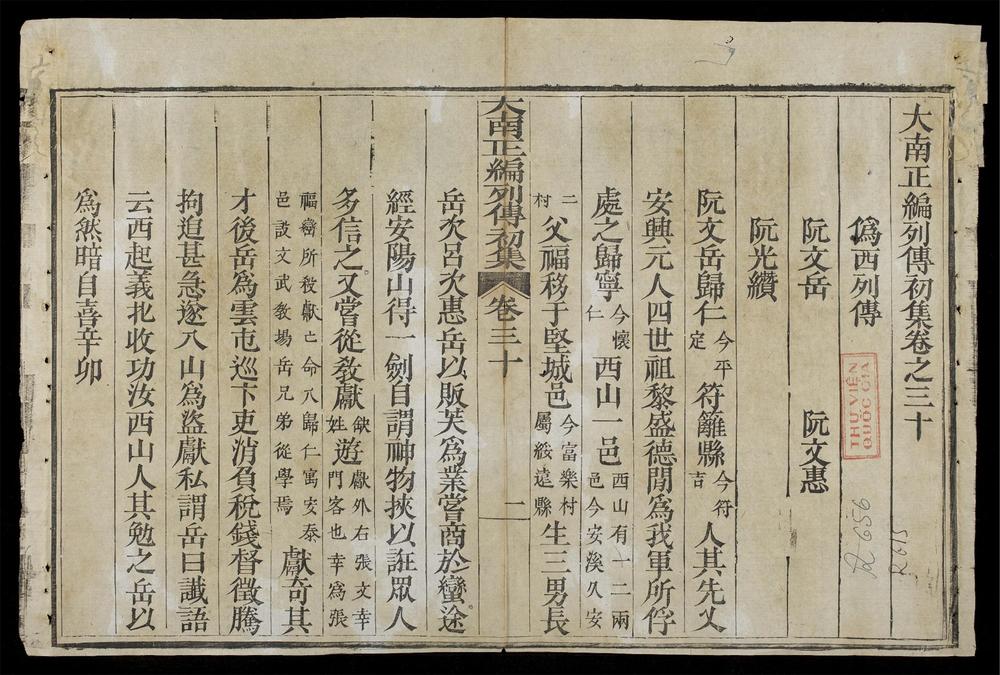 大南正編列傳初集卷之三十
僞西列傳
阮文岳 阮文惠
阮光纘
阮文岳歸仁今平定符籬縣今符吉人其先乂
安興元人四世祖黎盛德間爲我軍所俘
處之歸寧今懷仁西山一邑西山有一二兩邑今安溪久安
二村父福移于堅城邑今富樂村屬綏遠縣生三男長
大南正編列傳初集 卷三十 一
岳次呂次惠岳以販芙爲業嘗商於蠻途
經安陽山得一劍自謂神物挾以誑眾人
多信之又嘗從教獻缺姓遊獻外右張文幸門客也幸爲張
福巒所殺獻亡命入歸仁寓安泰邑設文武教場岳兄弟從學焉獻奇其
才後岳爲雲屯巡卞吏消負稅錢督徵騰
拘迫甚急遂入山爲盜獻私謂岳曰讖語
云西起義北收功汝西山人其勉之岳以
爲然暗自喜辛卯
THƯ VIỆN
QUỐC GIA
R 656
R 615